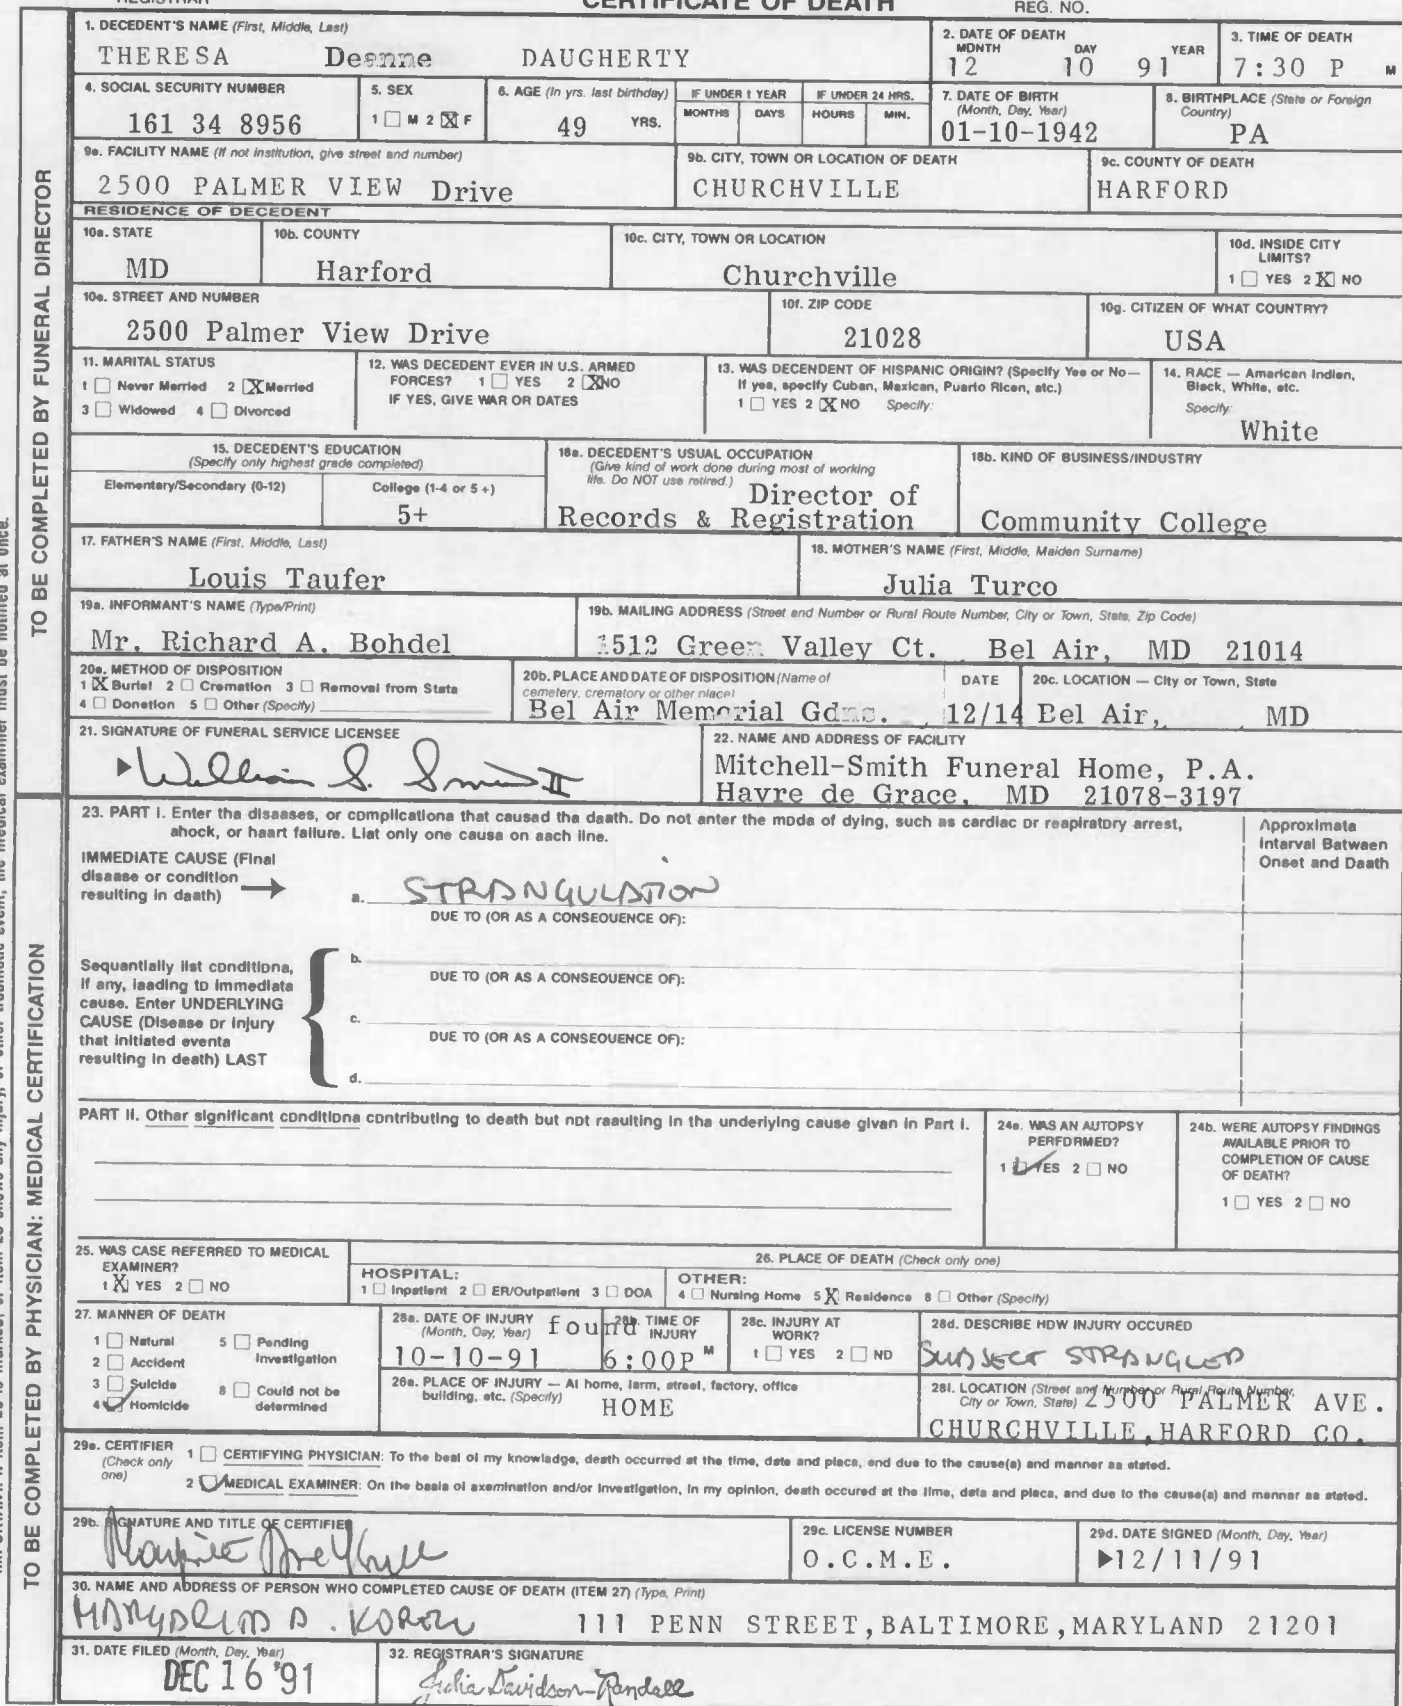 REGISTRAR
CERTIFICATE OF DEATH
REG. NO.
TO BE COMPLETED BY FUNERAL DIRECTOR
1. DECEDENT'S NAME (First, Middle, Last)
THERESA Deanne DAUGHERTY
2. DATE OF DEATH
MONTH DAY YEAR
12 10 91
3. TIME OF DEATH
7:30 P M
4. SOCIAL SECURITY NUMBER
161 34 8956
5. SEX
1 ☐ M 2 ☒ F
6. AGE (In yrs. last birthday)
49 YRS.
IF UNDER 1 YEAR
MONTHS DAYS
IF UNDER 24 HRS.
HOURS MIN.
7. DATE OF BIRTH
(Month, Day, Year)
01-10-1942
8. BIRTHPLACE (State or Foreign
Country)
PA
9a. FACILITY NAME (If not institution, give street and number)
2500 PALMER VIEW Drive
9b. CITY, TOWN OR LOCATION OF DEATH
CHURCHVILLE
9c. COUNTY OF DEATH
HARFORD
RESIDENCE OF DECEDENT
10a. STATE
MD
10b. COUNTY
Harford
10c. CITY, TOWN OR LOCATION
Churchville
10d. INSIDE CITY
LIMITS?
1 ☐ YES 2 ☒ NO
10e. STREET AND NUMBER
2500 Palmer View Drive
10f. ZIP CODE
21028
10g. CITIZEN OF WHAT COUNTRY?
USA
11. MARITAL STATUS
1 ☐ Never Married 2 ☒ Married
3 ☐ Widowed 4 ☐ Divorced
12. WAS DECEDENT EVER IN U.S. ARMED
FORCES? 1 ☐ YES 2 ☒ NO
IF YES, GIVE WAR OR DATES
13. WAS DECENDENT OF HISPANIC ORIGIN? (Specify Yes or No—
If yes, specify Cuban, Mexican, Puerto Rican, etc.)
1 ☐ YES 2 ☒ NO Specify:
14. RACE — American Indian,
Black, White, etc.
Specify:
White
15. DECEDENT'S EDUCATION
(Specify only highest grade completed)
Elementary/Secondary (0-12)
College (1-4 or 5+)
5+
16a. DECEDENT'S USUAL OCCUPATION
(Give kind of work done during most of working
life. Do NOT use retired.)
Director of
Records & Registration
16b. KIND OF BUSINESS/INDUSTRY
Community College
17. FATHER'S NAME (First, Middle, Last)
Louis Taufer
18. MOTHER'S NAME (First, Middle, Maiden Surname)
Julia Turco
19a. INFORMANT'S NAME (Type/Print)
Mr. Richard A. Bohdel
19b. MAILING ADDRESS (Street and Number or Rural Route Number, City or Town, State, Zip Code)
1512 Green Valley Ct. Bel Air, MD 21014
20a. METHOD OF DISPOSITION
1 ☒ Burial 2 ☐ Cremation 3 ☐ Removal from State
4 ☐ Donation 5 ☐ Other (Specify)
20b. PLACE AND DATE OF DISPOSITION (Name of
cemetery, crematory or other place)
Bel Air Memorial Gdns.
DATE
12/14
20c. LOCATION — City or Town, State
Bel Air, MD
21. SIGNATURE OF FUNERAL SERVICE LICENSEE
William S. Smith II
22. NAME AND ADDRESS OF FACILITY
Mitchell-Smith Funeral Home, P.A.
Havre de Grace, MD 21078-3197
TO BE COMPLETED BY PHYSICIAN: MEDICAL CERTIFICATION
23. PART I. Enter the diseases, or complications that caused the death. Do not enter the mode of dying, such as cardiac or respiratory arrest,
shock, or heart failure. List only one cause on each line.
Approximate
Interval Between
Onset and Death
IMMEDIATE CAUSE (Final
disease or condition
resulting in death) →
a. STRANGULATION
DUE TO (OR AS A CONSEQUENCE OF):
Sequentially list conditions,
if any, leading to immediate
cause. Enter UNDERLYING
CAUSE (Disease or injury
that initiated events
resulting in death) LAST
b.
DUE TO (OR AS A CONSEQUENCE OF):
c.
DUE TO (OR AS A CONSEQUENCE OF):
d.
PART II. Other significant conditions contributing to death but not resulting in the underlying cause given in Part I.
24a. WAS AN AUTOPSY
PERFORMED?
1 ☑ YES 2 ☐ NO
24b. WERE AUTOPSY FINDINGS
AVAILABLE PRIOR TO
COMPLETION OF CAUSE
OF DEATH?
1 ☐ YES 2 ☐ NO
25. WAS CASE REFERRED TO MEDICAL
EXAMINER?
1 ☒ YES 2 ☐ NO
26. PLACE OF DEATH (Check only one)
HOSPITAL:
1 ☐ Inpatient 2 ☐ ER/Outpatient 3 ☐ DOA
OTHER:
4 ☐ Nursing Home 5 ☒ Residence 6 ☐ Other (Specify)
27. MANNER OF DEATH
1 ☐ Natural 5 ☐ Pending
Investigation
2 ☐ Accident
3 ☐ Suicide 6 ☐ Could not be
determined
4 ☑ Homicide
28a. DATE OF INJURY
(Month, Day, Year) found
10-10-91
28b. TIME OF
INJURY
6:00P M
28c. INJURY AT
WORK?
1 ☐ YES 2 ☐ NO
28d. DESCRIBE HOW INJURY OCCURED
SUBJECT STRANGLED
28e. PLACE OF INJURY — At home, farm, street, factory, office
building, etc. (Specify)
HOME
28f. LOCATION (Street and Number or Rural Route Number,
City or Town, State) 2500 PALMER AVE.
CHURCHVILLE, HARFORD CO.
29a. CERTIFIER
(Check only
one)
1 ☐ CERTIFYING PHYSICIAN: To the best of my knowledge, death occurred at the time, date and place, and due to the cause(s) and manner as stated.
2 ☑ MEDICAL EXAMINER: On the basis of examination and/or investigation, in my opinion, death occured at the time, date and place, and due to the cause(s) and manner as stated.
29b. SIGNATURE AND TITLE OF CERTIFIER
29c. LICENSE NUMBER
O.C.M.E.
29d. DATE SIGNED (Month, Day, Year)
12/11/91
30. NAME AND ADDRESS OF PERSON WHO COMPLETED CAUSE OF DEATH (ITEM 27) (Type, Print)
111 PENN STREET, BALTIMORE, MARYLAND 21201
31. DATE FILED (Month, Day, Year)
DEC 16 '91
32. REGISTRAR'S SIGNATURE
Julia Davidson-Randall